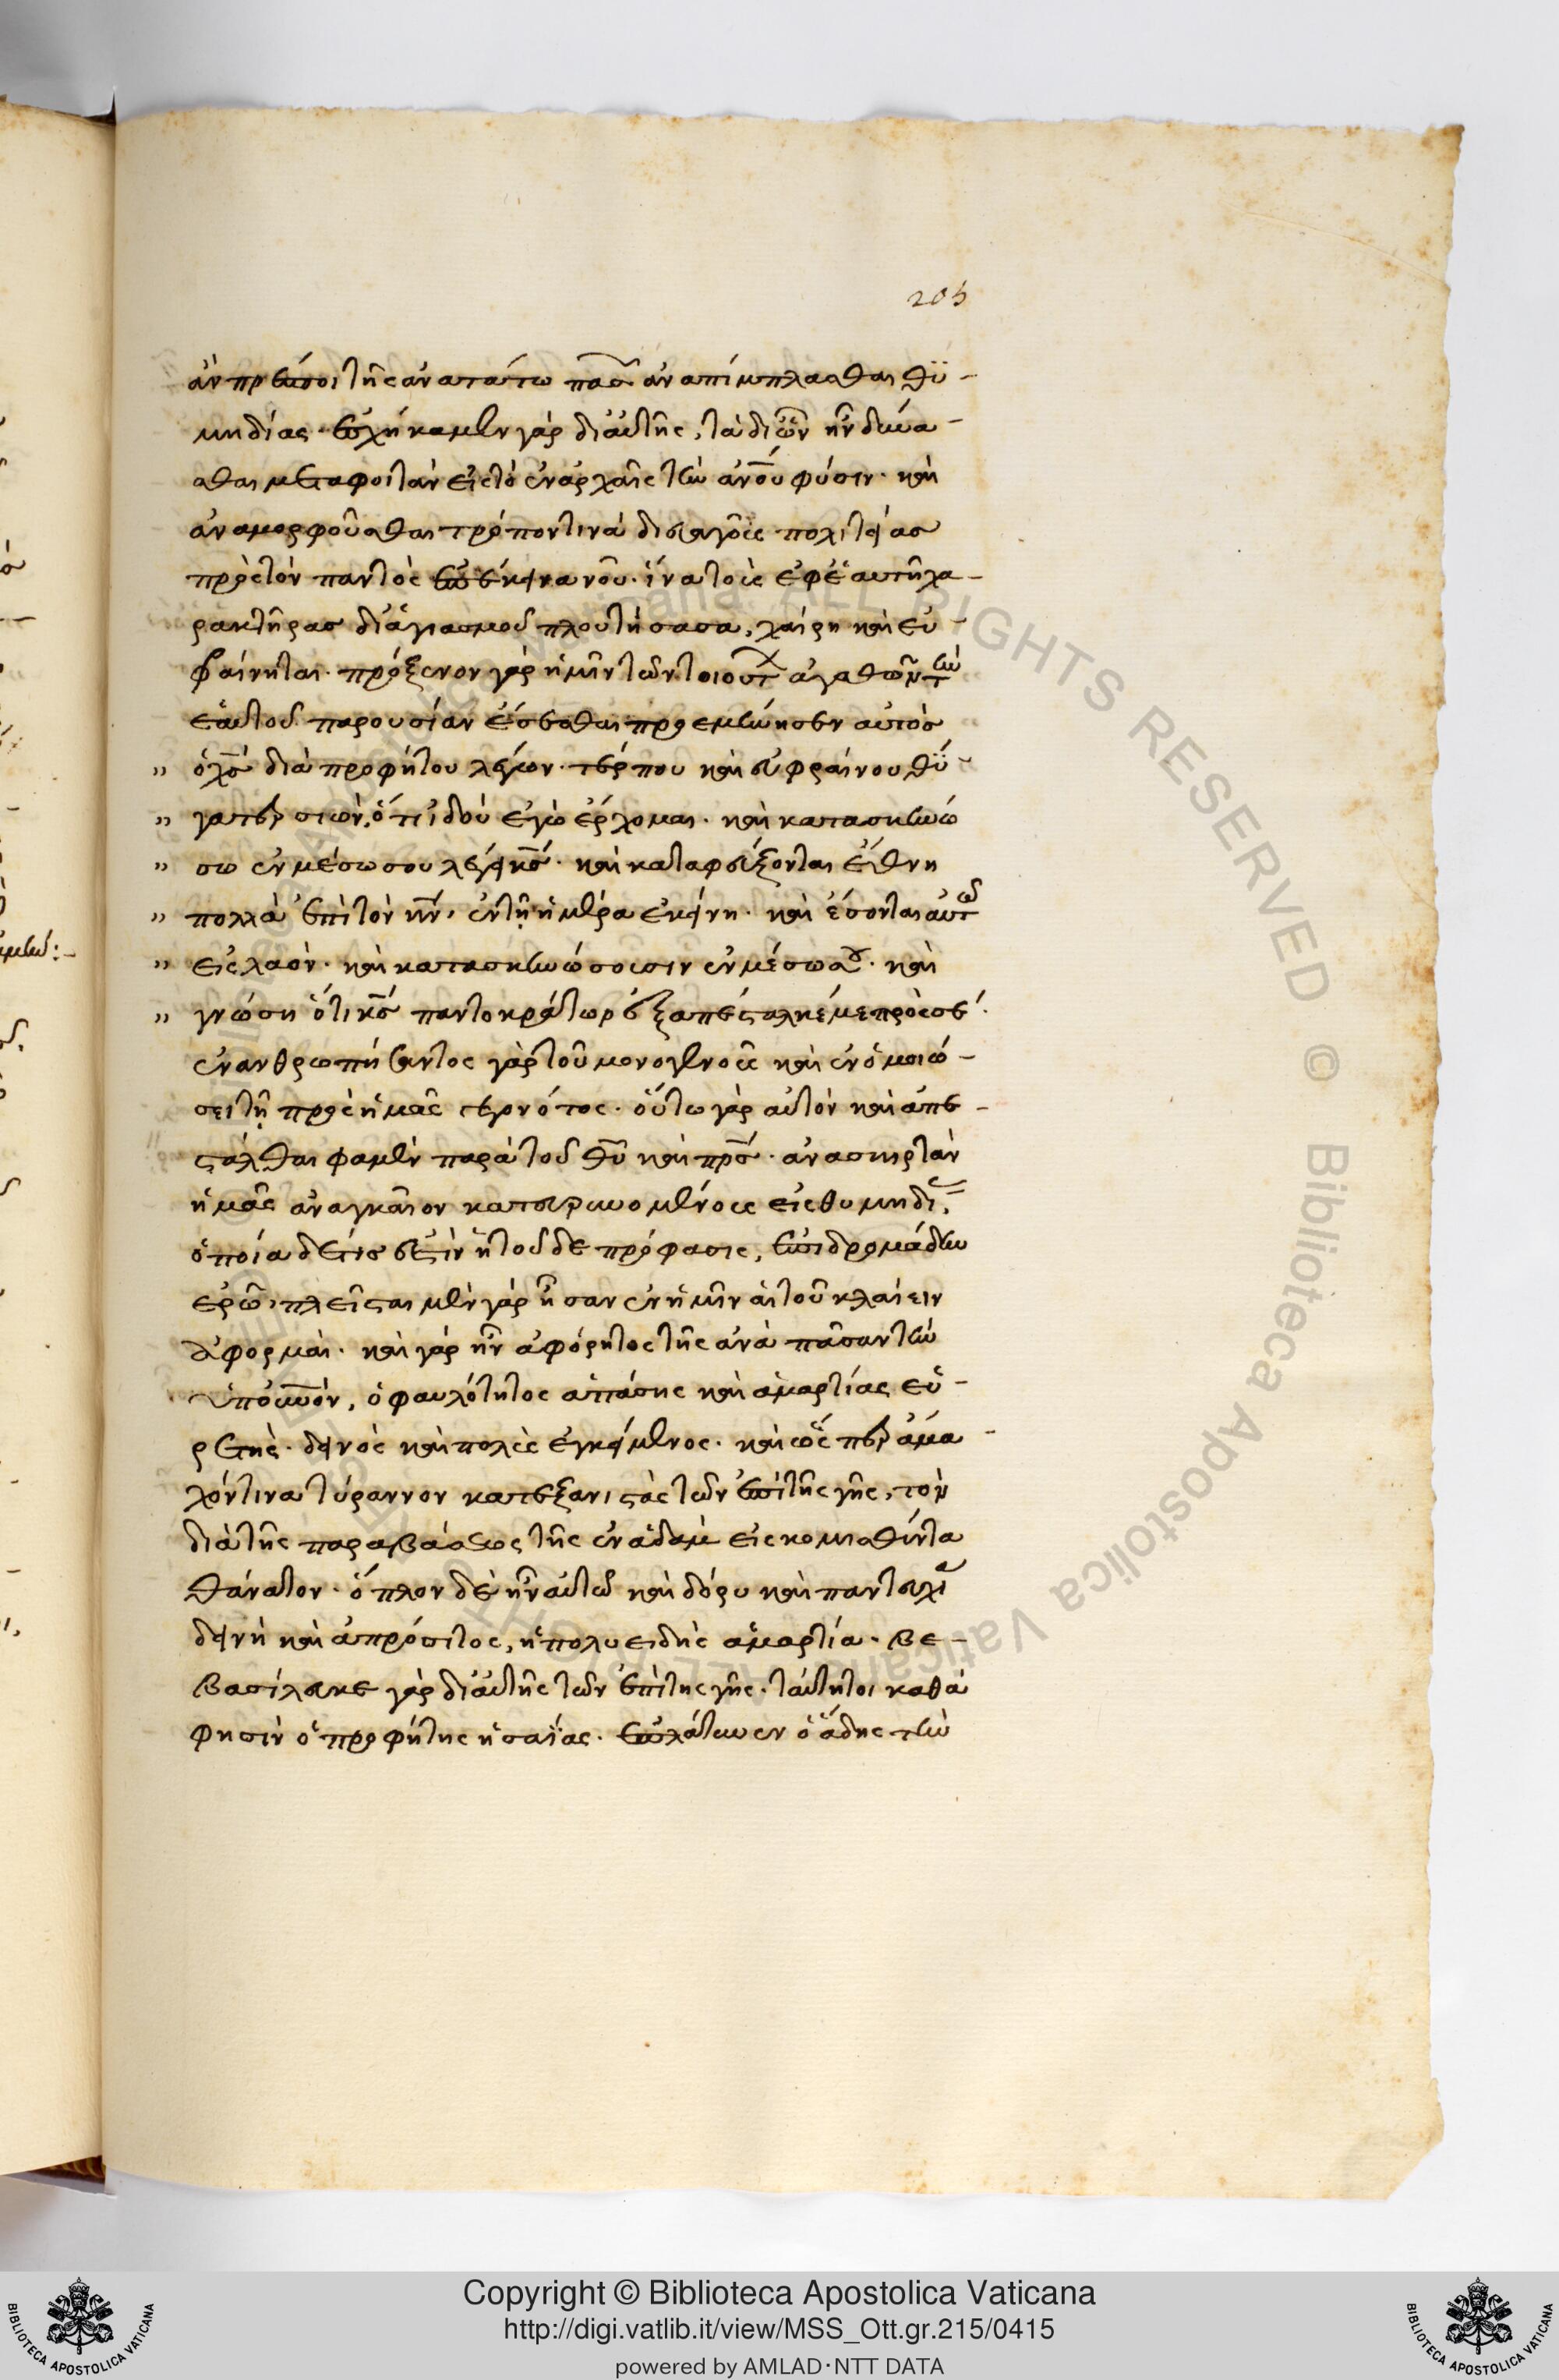 205
ἂν πρέποι τῆς ἀνωτάτω πασ ἀναπίμπλασθαι θυ-
μηδίας. ἐσχήκαμεν γὰρ δι' αὐτῆς, τὰ δι' ὧν ἦν δύνα-
σθαι μεταφοιτᾶν εἰς τὸ ἐν ἀρχαῖς τὴν ἀνου φύσιν. καὶ
ἀναμορφοῦσθαι τρόπον τινὰ δι' εὐαγοῦς πολιτείας
πρὸς τὸν παντὸς ἐπέκεινα νοῦ. ἵνα τοὺς ἐφ' ἑαυτῇ χα-
ρακτῆρας δι' ἁγιασμοῦ πλουτήσασα, χαίρη καὶ εὐ-
φραίνηται. πρόξενον γὰρ ἡμῖν τῶν τοιούτ ἀγαθῶν τὴν
ἑαυτοῦ παρουσίαν ἔσεσθαι προεμήνυσεν αὐτὸς
" ὁ χς διὰ προφήτου λέγων. τέρπου καὶ εὐφραίνου θύ-
" γατερ σιὼν, ὅτι ἰδοὺ ἐγὼ ἔρχομαι. καὶ κατασκηνώ
" σω ἐν μέσω σου λέγει κς. καὶ καταφεύξονται ἔθνη
" πολλὰ ἐπὶ τὸν κν, ἐν τῇ ἡμέρα ἐκείνη. καὶ ἔσονται αὐτῶ
" εἰς λαόν. καὶ κατασκηνώσουσιν ἐν μέσω σου. καὶ
" γνώση ὅτι κς παντοκράτωρ ἐξαπέσταλκέ με πρὸς σέ.
ἐνανθρωπήσαντος γὰρ τοῦ μονογενοῦς καὶ ἐν ὁμοιώ-
σει τῇ πρὸς ἡμᾶς γεγονότος. οὕτω γὰρ αὐτὸν καὶ ἀπε-
στάλθαι φαμὲν παρὰ τοῦ θυ καὶ πρς. ἀνασκιρτᾶν
ἡμᾶς ἀναγκαῖον κατευρυνομένους εἰς θυμηδί,
ὁποία δέ τις ἐστὶν ἡ τοῦδε πρόφασις, ἐπιδρομάδην
ἐρῶ. πλεῖσται μὲν γὰρ ἦσαν ἐν ἡμῖν αἱ τοῦ κλαίειν
ἀφορμαὶ. καὶ γὰρ ἦν ἀφόρητος τῆς ἀνὰ πᾶσαν τὴν
ὑπ' οὐνὸν, ὁ φαυλότητος ἁπάσης καὶ ἁμαρτίας εὑ-
ρετὴς. δεινὸς καὶ πολὺς ἐγκείμενος. καὶ ὥσπερ ἄμα-
χόν τινα τύραννον κατεξανιστὰς τῶν ἐπὶ τῆς γῆς, τὸν
διὰ τῆς παραβάσεως τῆς ἐν ἀδὰμ εἰσκομισθέντα
θάνατον. ὅπλον δὲ ἦν αὐτῶ καὶ δόρυ καὶ παντευχί
δεινὴ καὶ ἀπρόσιτος, ἡ πολυειδὴς ἁμαρτία. βε-
βασίλευκε γὰρ δι' αὐτῆς τῶν ἐπὶ τῆς γῆς. ταύτητοι καθά
φησὶν ὁ προφήτης ἡσαΐας. ἐπλάτυνεν ὁ ἅδης τὴν
Biblioteca Apostolica Vaticana ALL RIGHTS RESERVED ©
Copyright © Biblioteca Apostolica Vaticana
http://digi.vatlib.it/view/MSS_Ott.gr.215/0415
powered by AMLAD·NTT DATA
BIBLIOTECA APOSTOLICA VATICANA
BIBLIOTECA APOSTOLICA VATICANA